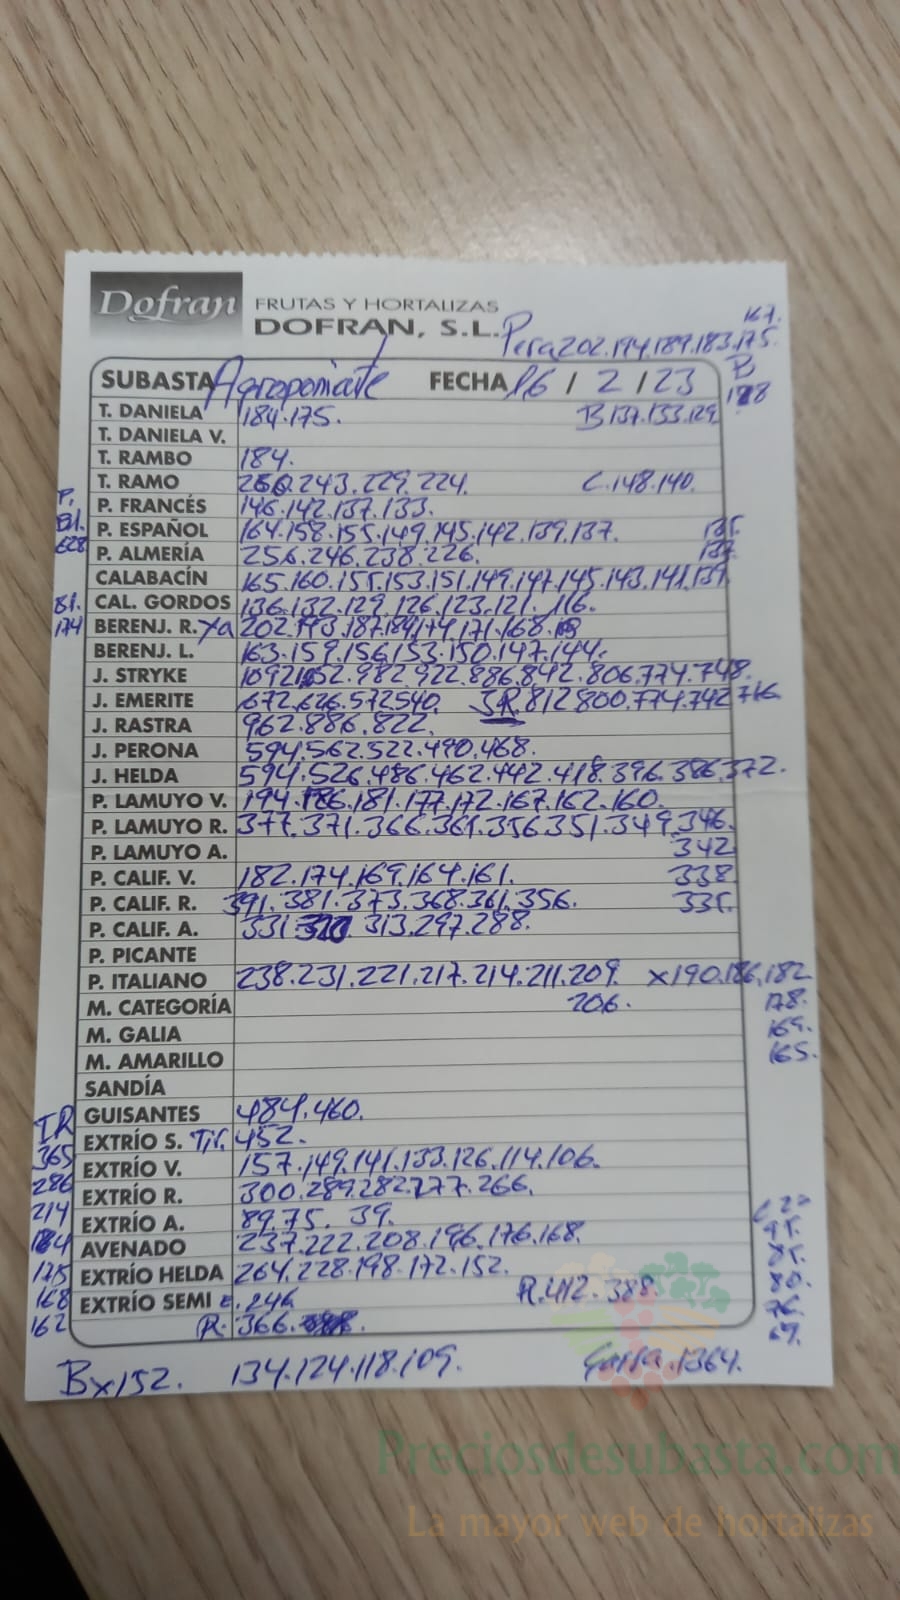 Dofran FRUTAS Y HORTALIZAS
DOFRAN, S.L.
Pera 202.194.189.183.175.
167.
SUBASTA Agroponiente FECHA 16 / 2 / 23
B
128
T. DANIELA 184.175. B 137.133.129.
T. DANIELA V.
T. RAMBO 184.
T. RAMO 260.243.229.224. C.148.140.
P. FRANCÉS 146.142.137.133.
P. Bl. 628
P. ESPAÑOL 164.158.155.149.145.142.139.137. 135.
P. ALMERÍA 256.246.238.226. 137.
CALABACÍN 165.160.155.153.151.149.147.145.143.141.139.
Bl. 174
CAL. GORDOS 136.132.129.126.123.121.116.
BERENJ. R. 202.193.187.184.174.171.168.
BERENJ. L. 163.159.156.153.150.147.144.
J. STRYKE 1092.1052.982.922.886.842.806.774.748.
J. EMERITE 672.626.572.540. SR. 812.800.774.742.716.
J. RASTRA 962.886.822.
J. PERONA 594.562.522.490.468.
J. HELDA 594.526.486.462.442.418.396.386.372.
P. LAMUYO V. 194.186.181.177.172.167.162.160.
P. LAMUYO R. 377.371.366.361.356.351.349.346.
P. LAMUYO A. 342.
P. CALIF. V. 182.174.169.164.161. 338
P. CALIF. R. 391.381.373.368.361.356. 335.
P. CALIF. A. 331. 320 313.297.288.
P. PICANTE
P. ITALIANO 238.231.221.217.214.211.209. x190.186.182
M. CATEGORÍA 206. 178.
M. GALIA 169.
M. AMARILLO 165.
SANDÍA
GUISANTES 484.460.
TR
365
286
214
184
175
168
162
EXTRÍO S. Tir. 452.
EXTRÍO V. 157.149.141.133.126.114.106.
EXTRÍO R. 300.289.282.277.266.
EXTRÍO A. 89.75. 39.
AVENADO 237.222.208.196.176.168.
EXTRÍO HELDA 264.228.198.172.152.
EXTRÍO SEMI E. 246 R.412.388.
R. 366.
95.
85.
80.
76.
69.
Bx152. 134.124.118.109. Garra.1364.
Preciosdesubasta.com
La mayor web de hortalizas